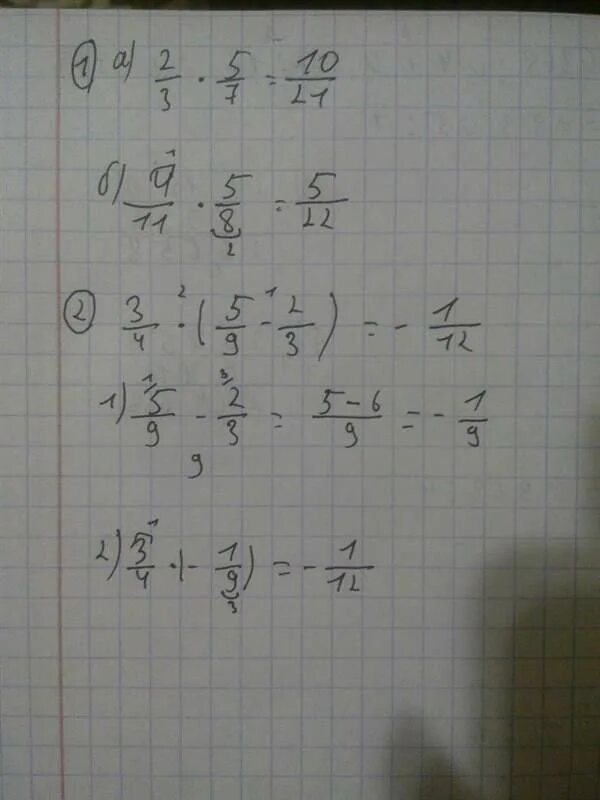 ① а) 2/3 · 5/7 = 10/21
б) 4/11 · 5/8 = 5/22
② 3/4 · (5/9 - 2/3) = - 1/12
1) 5/9 - 2/3 = 5-6/9 = - 1/9
2) 3/4 · (- 1/9) = - 1/12